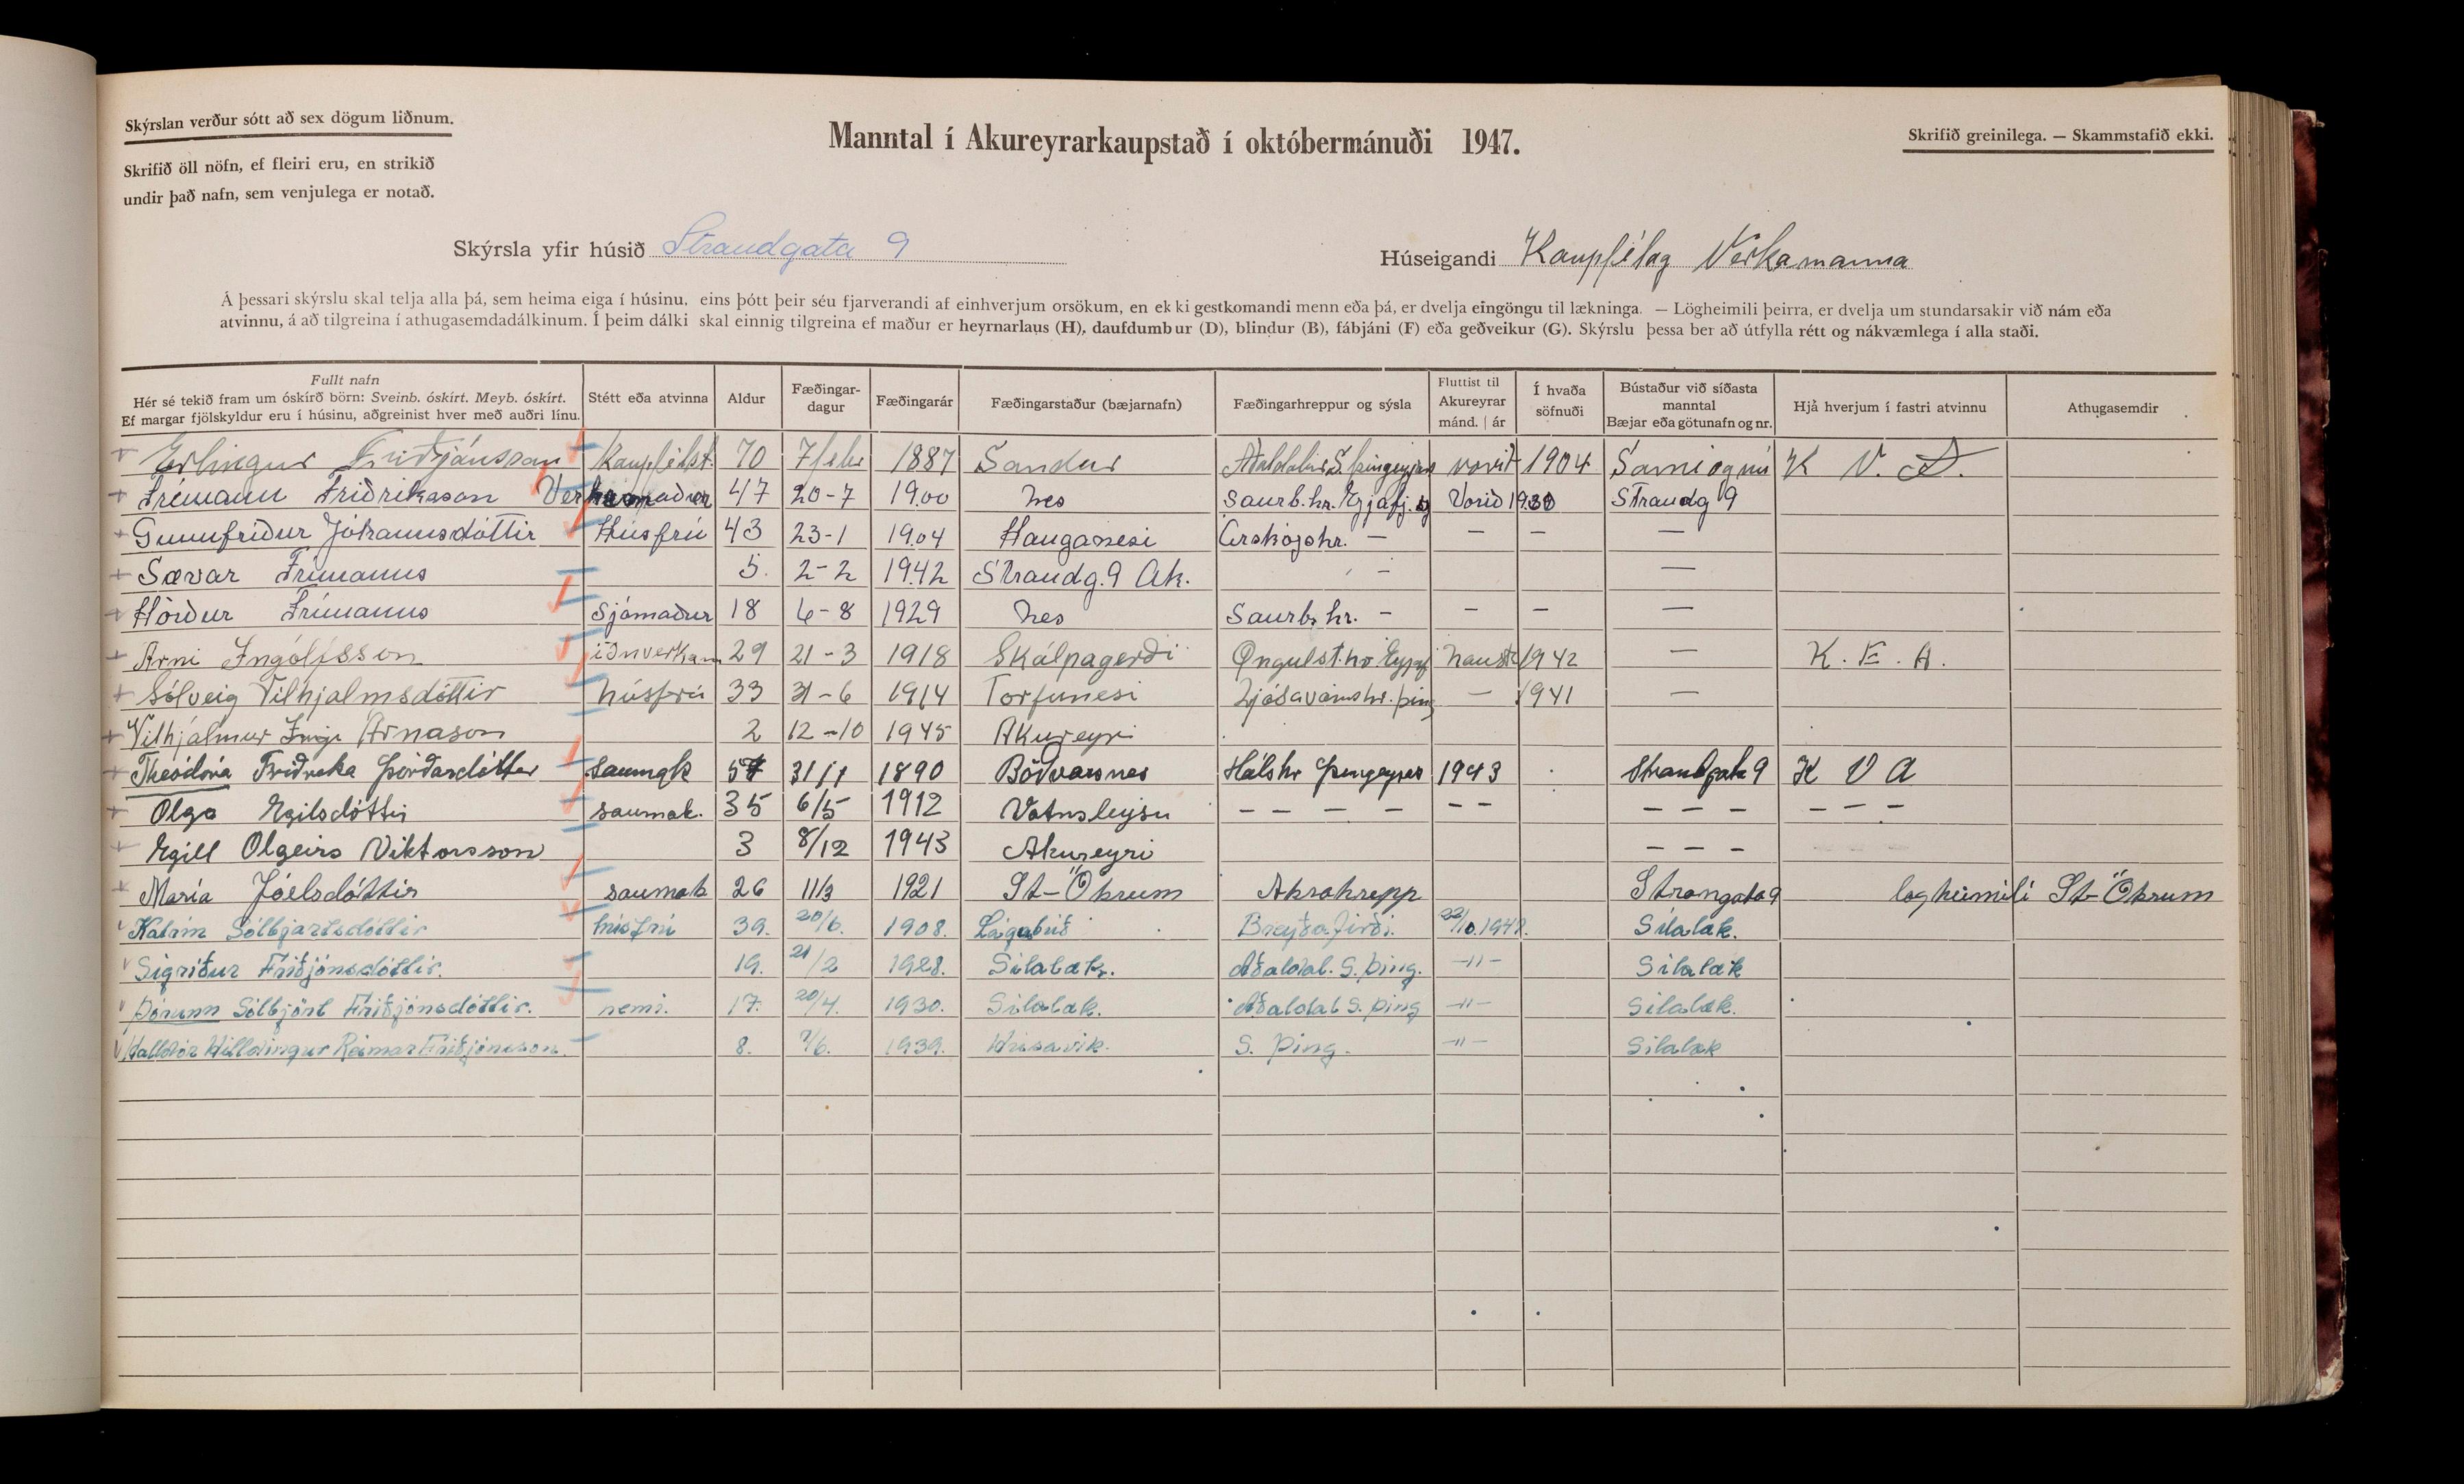 Skýrslan verður sótt að sex dögum liðnum.
Skrifið öll nöfn, ef fleiri eru, en strikið
undir það nafn, sem venjulega er notað.
Manntal í Akureyrarkaupstað í októbermánuði 1947.
Skrifið greinilega. — Skammstafið ekki.
Skýrsla yfir húsið Strandgata 9
Húseigandi Kaupfélag Verkamanna
Á þessari skýrslu skal telja alla þá, sem heima eiga í húsinu, eins þótt þeir séu fjarverandi af einhverjum orsökum, en ekki gestkomandi menn eða þá, er dvelja eingöngu til lækninga. — Lögheimili þeirra, er dvelja um stundarsakir við nám eða
atvinnu, á að tilgreina í athugasemdadálkinum. Í þeim dálki skal einnig tilgreina ef maður er heyrnarlaus (H), daufdumbur (D), blindur (B), fábjáni (F) eða geðveikur (G). Skýrslu þessa ber að útfylla rétt og nákvæmlega í alla staði.
Fullt nafn
Hér sé tekið fram um óskírð börn: Sveinb. óskírt. Meyb. óskírt.
Ef margar fjölskyldur eru í húsinu, aðgreinist hver með auðri línu.
Stétt eða atvinna
Aldur
Fæðingar-
dagur
Fæðingarár
Fæðingarstaður (bæjarnafn)
Fæðingarhreppur og sýsla
Fluttist til
Akureyrar
mánd. | ár
Í hvaða
söfnuði
Bústaður við síðasta
manntal
Bæjar eða götunafn og nr.
Hjá hverjum í fastri atvinnu
Athugasemdir
Erlingur Friðjónsson Kaupfélst. 70 7 febr 1887 Sandur vorið 1904 Sami og nú K V. A.
Frímann Friðriksson Verkamaður 47 20-7 1900 Nes Saurb.hr. Eyjafj.s Vorið 1930 Strandg 9
Gunnfríður Jóhannsdóttir Húsfrú 43 23-1 1904 Hauganesi Árskógshr. — — — —
Sævar Frímanns 5. 2-2 1942 Strandg. 9 Ak. — —
Hörður Frímanns Sjómaður 18 6-8 1929 Nes Saurb. hr. — — — —
Árni Ingólfsson iðnverkam 29 21-3 1918 Skálpagerði Öngulst.hr. Eyjaf haust 1942 — K. E. A.
Sólveig Vilhjalmsdóttir húsfrú 33 31-6 1914 Torfunesi Ljósavatnshr. þing — 1941 —
Vilhjálmur Ingi Árnason 2 12-10 1945 Akureyri
Theódóra Friðreka Þórðardóttir Saumak 57 31/1 1890 Böðvarsnes Hálshr Þingeyjar 1943 Strandgata 9 K V A
Olga Egilsdóttir saumak. 35 6/5 1912 Vatnsleysu — — — — — — — — — — — —
Egill Olgeirs Viktorsson 3 8/12 1943 Akureyri — — —
María Jóelsdóttir saumak 26 11/3 1921 St-Ökrum Akrahrepp Strangata 9 logheimili St-Ökrum
Katrín Sólbjartsdóttir húsfrú 39. 20/6. 1908. Lágubúð Breyðafirði. 22/10.1947. Sílalæk.
Sigríður Friðjónsdóttir. 19. 21/2 1928. Sílalæk. Aðaldal. S. Þing. —"— Sílalæk
Þórunn Sólbjört Friðjónsdóttir. nemi. 17. 20/4. 1930. Sílalæk. Aðaldal S. Þing —"— Sílalæk.
Halldór Hilldingur Reimar Friðjónsson. 8. 7/6. 1939. Húsavík. S. Þing. —"— Sílalæk